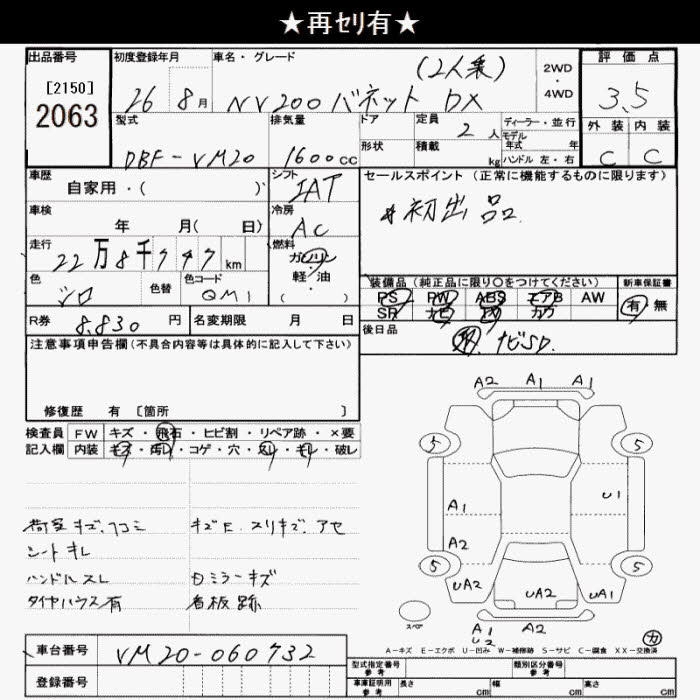 ★再セリ有★
出品番号 初度登録年月 車名・グレード 評価点
[2150]
2063
26 8月 NV200 バネット DX (2人乗) 2WD・4WD 3.5
型式 排気量 ドア 定員 2人 ディーラー・並行 外装 内装
モデル年式 年
DBF-VM20 1600cc 形状 積載 kg ハンドル 左・右 C C
車歴 自家用・( ) シフト IAT セールスポイント (正常に機能するものに限ります)
車検 年 月( 日) 冷房 AC *初出品
走行 22万8千747km 燃料 ガソリン・軽・油 ( )
装備品(純正品に限り○をつけてください) 新車保証書
色 シロ 色替 色コード QM1 PS PW ABS エアB AW 有 無
SR ナビ TV カワ
R券 8.830円 名変期限 月 日 後日品 ナビSD.
注意事項申告欄(不具合内容等は具体的に記入して下さい)
修復歴 有 [箇所 ]
検査員 FW キズ・飛石・ヒビ割・リペア跡・×要
記入欄 内装 キズ・汚レ・コゲ・穴・スレ・キレ・破レ
荷室キズ、凹ミ キズE.スリキズ.アセ
シートキレ
ハンドルスレ Dミラーキズ
タイヤハウス有 看板跡
A2 A1 A1
5 5
A1 U1
A2
5 5
UA2 UA2 UA1
スペア A1 A2
U2 カ
A-キズ E-エクボ U-凹み W-補修跡 S-サビ C-腐食 XX-交換済
車台番号 VM20-060732
登録番号
型式指定番号 参考 類別区分番号 参考
車庫証明用 参考 長さ cm 幅 cm 高さ cm